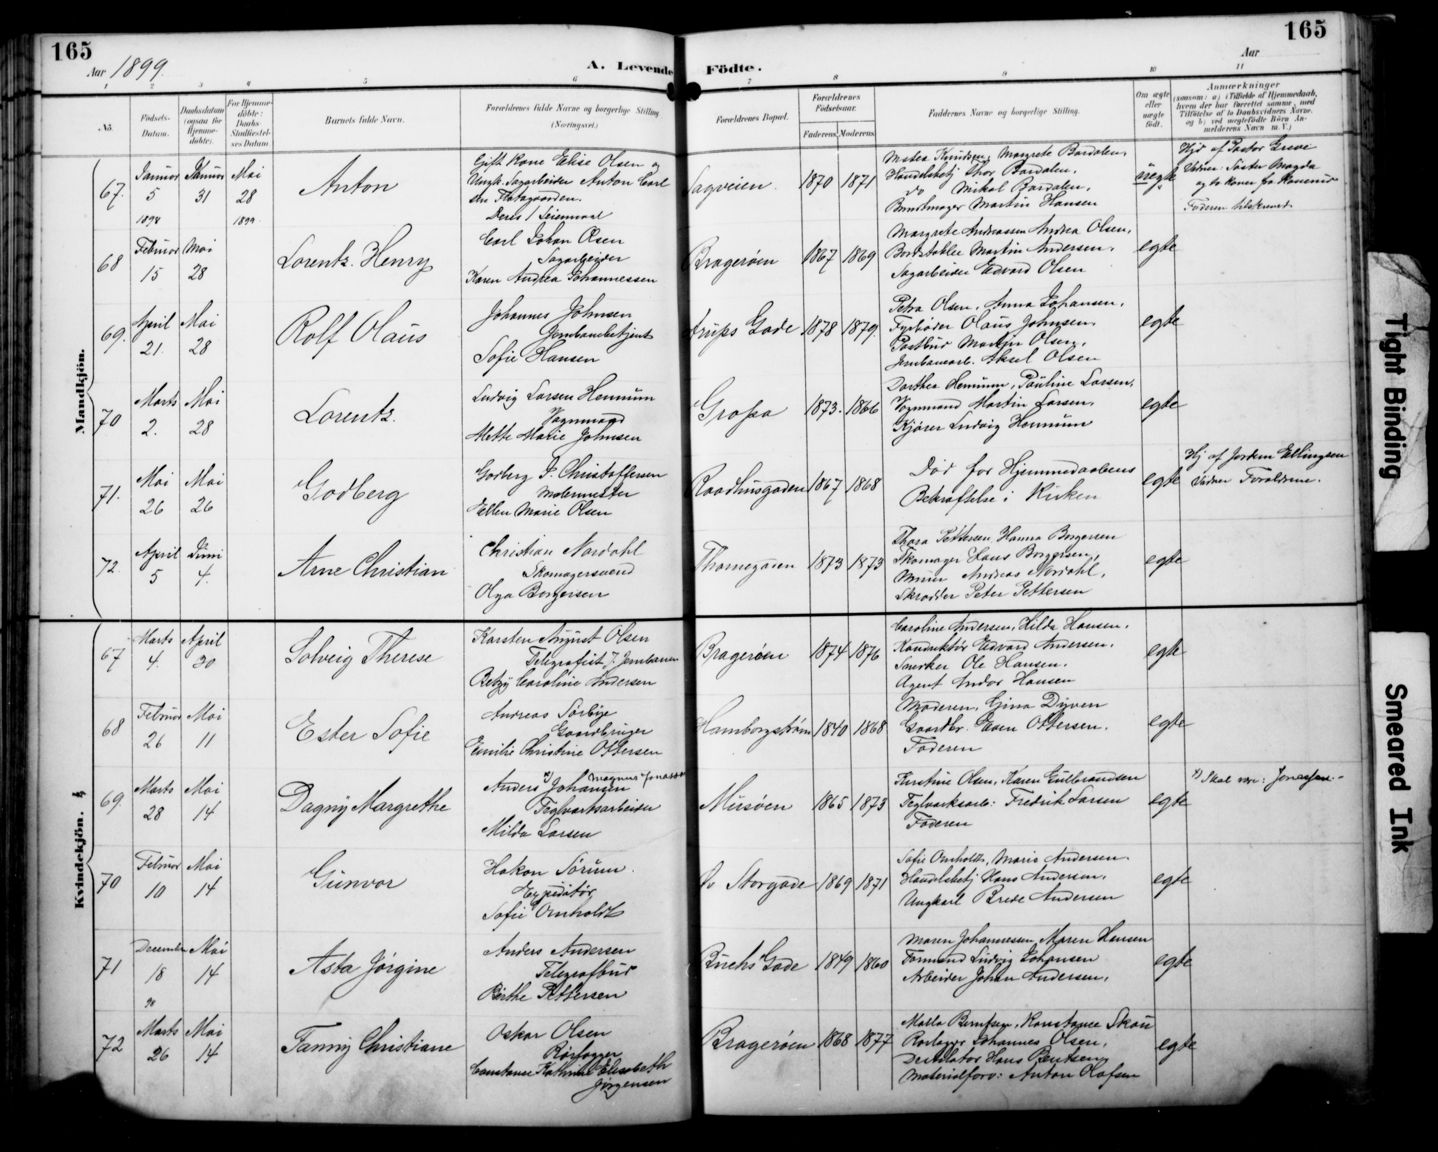 165
Aar 1899.
A. Levende Födte.
Aar
165
1 2 3 4 5 6 7 8 9 10 11
No.
Födsels-Datum.
Daabsdatum (ogsaa for Hjemmedöbte).
For Hjemmedöbte: Daabs-Stadfæstelses Datum
Barnets fulde Navn.
Forældrenes fulde Navne og borgerlige Stilling (Næringsvei.)
Forældrenes Bopæl.
Forældrenes Födselsaar.
Faderens. Moderens.
Faddernes Navne og borgerlige Stilling.
Om ægte eller uægte födt.
Anmærkninger
(saasom: a) i Tilfælde af Hjemmedaab, hvem der har forrettet samme, med Tilföielse af to Daabsvidners Navne, og b) ved uægtefödte Börn Anmelderens Navn m. V.)
Mandkjön.
67. Januar 5 1898 Januar 31 Mai 28 1899
Anton
Gift Kone Elise Olsen og
Ungk. Sagarbeider Anton Carl
Sagveien. 1870 1871
Matea Knudsen, Margrete Bardalen,
Handelsbetj Thor Bardalen,
do Mikal Bardalen,
Buntmager Martin Hansen
uegte
Hjd af Pastor Greve
68 Februar 15 Mai 28
Lorentz Henry
Carl Johan Olsen
Sagarbeider
Karen Andrea Johannessen
Bragerøen 1867 1869
Margrete Andreassen Andrea Olsen,
Bordstabler Martin Andersen,
Sagarbeider Edvard Olsen
egte
69. April 21. Mai 28
Rolf Olaus
Johannes Johnsen
Jernbanebetjent
Sofie Hansen
Gade 1878 1879.
Petra Olsen, Anna Johansen,
Fyrbøder Olaus Johnsen,
Postbud Martin Olsen,
Jernbanearb. Aksel Olsen
egte
70 Marts 2. Mai 28
Lorentz.
Ludvig Larsen Hennum
Vognmand
Mette Marie Johnsen
Grossa 1873. 1866
Dorthea Hennum, Pauline Larsen,
Vognmand Martin Larsen,
Kjører Ludvig Hennum
egte
71. Mai 26 Mai 26
Godberg
Godberg P. Christoffersen
Malermester
Ellen Marie Olsen
Raadhusgaden 1867 1868
Død før Hjemmedaabens
Bekræftelse i Kirken
egte
Hj af Jordem Ellingsen
Vidner Forældrene.
72. April 5 Juni 4.
Arne Christian
Christian Nordahl
Skomagersvend
Olga Borgersen
Thornegaden 1873 1873
Thora Pettersen, Hanna Borgersen
Skomager Hans Borgersen,
Murer Andreas Nordahl,
Skrædder Peter Pettersen
egte
Kvindekjön.
67 Marts 4. April 30
Solveig Therese
Karsten August Olsen
Telegrafist v. Jernbanen
Betzy Caroline Andersen
Bragerøen 1874 1876
Caroline Andersen, Hilda Hansen,
Konduktør Edvard Andersen,
Snerker Ole Hansen,
Agent Andor Hansen
egte
68 Februar 26 Mai 11
Ester Sofie
Andreas Sørbye
Gaardbruger
Emilie Christine Ottersen
Hamborgstrøm 1840 1868
Moderen, Gina Dyven
Gaardbr. Even Ottersen.
Faderen
egte
69. Marts 28 Mai 14
Dagny Margrethe
Anders x) Johansen Magnus Jonassen
Teglverksarbeider
Milda Larsen
Miisøen 1865 1873
Kirstine Olsen, Karen Gulbrandsen
Teglverksarb. Fredrik Larsen
Faderen
egte
x) Skal være: Jonassen.
70 Februar 10 Mai 14
Gunvor
Hakon Sørum.
Expeditør
Sofie Omholdt
Storgade 1869 1871
Sofie Omholdt, Marie Andersen.
Handelsbetj Hans Andersen,
Ungkarl Brede Andersen
egte
71 December 18 98 Mai 14
Asta Jørgine
Anders Andersen
Telegrafbud
Birthe Pettersen
Buchs Gade 1849 1860
Maren Johannessen, Maren Hansen
Formand Ludvig Johansen
Arbeider Johan Andersen,
egte
72 Marts 26 Mai 14
Fanny Christiane
Oskar Olsen
Rørlægger
Constance Kathrine Elisabeth
Jørgensen
Bragerøen 1868 1877
Malla Berntsen, Konstance Skou
Rørlægger Johannes Olsen,
Destilatør Hans Bentsen,
Materialforv: Anton Olafsen
egte
Tight Binding
Smeared Ink